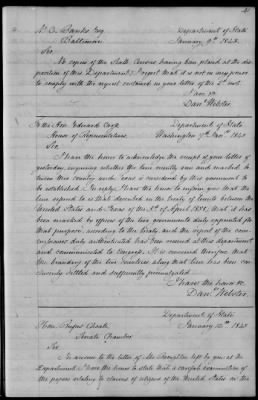 41
N. C. Banks Esq
Baltimore
Department of State
January 9th 1843.
Sir,
No copies of the Sixth Census having been placed at the dis-
position of this Department, I regret that it is not in my power
to comply with the request contained in your letter of the 5th inst.
I am &c
Danl Webster.
To the Hon. Edward
House of Representatives,
Department of State
Washington 9th Jany 1843
Sir,
I have the honor to acknowledge the receipt of your letter of
yesterday, inquiring whether the line recently run and marked be-
tween this country and Texas is considered by this government to
be established. In reply, I have the honor to inform you that the
line referred to is that described in the treaty of limits between the
United States and Texas of the of April 1838, that it has
been marked by officers of the two governments duly appointed for
that purpose, according to the treaty and the report of the com-
missioners duly authenticated has been received at this department
and communicated to Congress. It is conceived therefore that
the boundary of the two countries along that line has been con-
clusively settled and sufficiently promulgated.
I have the honor &c
Danl Webster.
Department of State
January 12th 1843
Hon. Rufus Choate
Senate Chamber
Sir,
In answer to the letter of Mr. left by you at the
Department, I have the honor to state that a careful examination of
the papers relative to claims of citizens of the United States on the